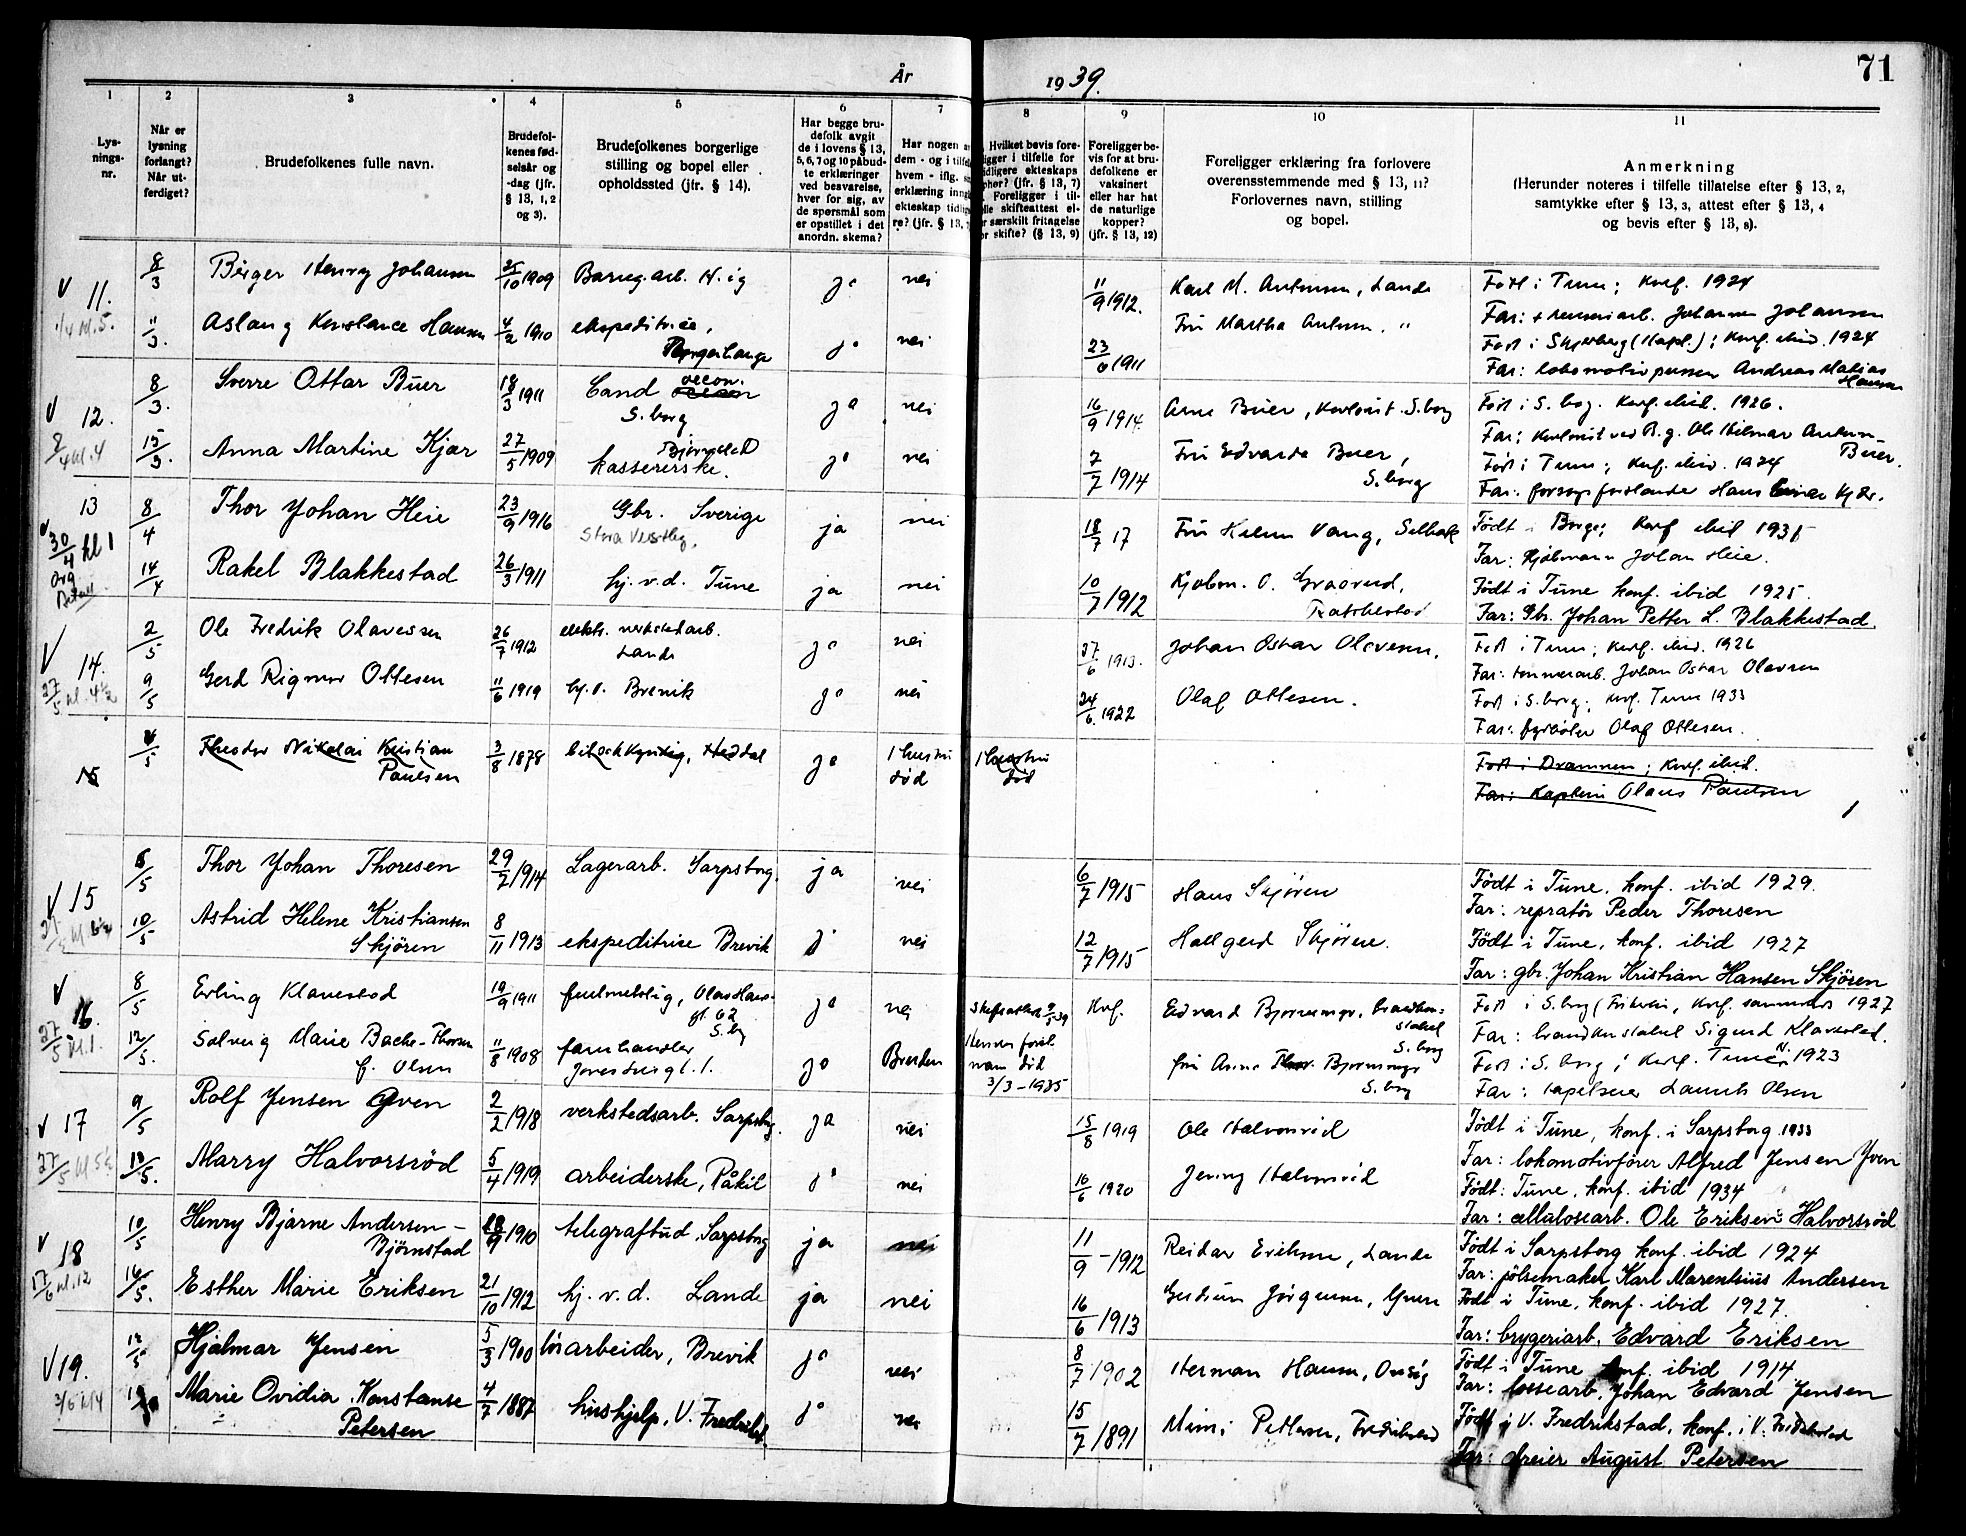 71
År 1939.
1
2
3
4
5
6
7
8
9
10
11
Lys-
nings-
nr.
Når er
lysning
forlangt?
Når ut-
ferdiget?
Brudefolkenes fulle navn.
Brudefol-
kenes fød-
selsår og
-dag (jfr.
§ 13, 1, 2
og 3).
Brudefolkenes borgerlige
stilling og bopel eller
opholdssted (jfr. § 14).
Har begge bru-
defolk avgit
de i lovens § 13,
5, 6, 7 og 10 påbud-
te erklæringer
ved besvarelse,
hver for sig, av
de spørsmål som
er opstillet i det
anordn. skema?
Har nogen
dem - og i tilfe
hvem - iflg.
erklæring inng
ekteskap tidlig
re? (jfr. § 13,
Hvilket bevis fore-
ligger i tilfelle for
tidligere ekteskaps
ophør? (jfr. § 13, 7)
Foreligger i til-
elle skifteattest el-
r særskilt fritagelse
or skifte? (§ 13, 9)
Foreligger be-
vis for at bru-
defolkene er
vaksinert
eller har hat
de naturlige
kopper?
(jfr. § 13, 12)
Foreligger erklæring fra forlovere
overensstemmende med § 13, 11?
Forlovernes navn, stilling
og bopel.
Anmerkning
(Herunder noteres i tilfelle tillatelse efter § 13, 2,
samtykke efter § 13, 3, attest efter § 13, 4
og bevis efter § 13, 8).
11. 8/3 Birger Henry Johansen 25/10 1909 ja nei 11/9 1912. Karl M. Antonsen, Lande Født i Tune; konf. 1924
Far: Johannes Johansen
11/3. Aslaug Konstance Hansen 4/2 1910 ekspeditrice, Borgenhauge ja nei 23/6 1911 Fru Martha Antonsen, "
Født i Skjeberg (Hapl.); konf. ibid. 1924
Far: lokomotivpusser Andreas Matias Hansen
12. 8/3. Sverre Ottar Buer 18/3 1911 Cand oecon. S.borg ja nei 16/9 1914. Arne Buer, S.borg Født i S.borg. konf. ibid. 1926.
Far: Ole Hilmar Antonsen Buer.
15/3. Anna Martine Kjær 27/5 1909 kassererske. ja nei 7/7 1914 Fru Edvarda Buer, S.borg
Født i Tune; konf. ibid. 1924
Far: Hans Kjær.
13 8/4 Thor Johan Heie 23/9 1916 Gbr. Sverige ja nei 18/7 17 Fru Helene Vang, Selbak Født i Borge; konf ibid 1931
30/4 kl 1 Far: Johan Heie.
14/4 Rakel Blakkestad 26/3 1911 hj.v.d. Tune ja nei 10/7 1912 Født i Tune konf. ibid 1925.
Far: Gbr. Johan Petter L. Blakkestad.
14. 2/5 Ole Fredrik Olavesen 26/7 1912 elektr. verkstedarb. Lande ja nei 27/6 1913. Johan Oskar Olavesen. Født i Tune; konf. ibid. 1926
Far: tømmerarb. Johan Oskar Olavsen
27/5 kl. 4½ 9/5 Gerd Rigmor Ottesen 11/6 1919 hj.v. Brevik ja nei 24/6. 1922 Olaf Ottesen. Født i S.borg; konf. Tune 1933
Far: fyrbøter Olaf Ottesen.
15 4/5 Theodor Nikolai Kristian Paulsen 3/8 1878 ja 1 hustru død 1 hustru død
Født i Drammen; konf. ibid.
Far: Kaptein Olaus Paulsen
15 6/5 Thor Johan Thoresen 29/7 1914 Lagerarb. Sarpsborg. ja nei 6/7 1915 Hans Skjøren Født i Tune, konf. ibid 1929.
Far: repratør Peder Thoresen
10/5 Astrid Helene Kristiansen Skjøren 8/11 1913 ekspeditrise Brevik ja nei 12/7 1915 Hallgerd Skjøren. Født i Tune, konf. ibid 1927
Far: gbr. Johan Kristian Hansen Skjøren
16. 8/5 Erling Klavestad 19/9 1911 gt. 62 S.bg ja nei Konf. Edvard Bjørnemyr, brandkonstabel S.borg
Født i S.borg (Frikirken, konf. sammesteds 1927
Far: brandkonstabel Sigurd Klavestad.
27/5 kl.1. 12/5. Solveig Marie Bache-Thoresen f. Olsen 11/8 1908 ja mann død 3/3-1935 fru Anna Bjørnemyr S.borg
Født i S.borg; konf. Tune 1923
Far: Olsen
17 9/5 Rolf Jensen Yven 2/2 1918 verkstedsarb. Sarpsbg. ja nei 15/8 1919 Ole Halvorsrød Født i Tune, konf. i Sarpsborg 1933
Far: lokomotivfører Alfred Jensen Yven
13/5. Marry Halvorsrød 5/4 1919 arbeiderske, Påkil ja nei 16/6 1920 Jenny Halvorsrød Født: Tune, konf. ibid 1934
Far: cellulosearb. Ole Eriksen Halvorsrød
18 10/5 Henry Bjarne Andersen - Bjørnstad 1910 telegrafbud, Sarpsborg ja nei 11/9-1912 Reidar Eriksen, Lande Født i Sarpsborg konf. ibid 1924
Far: pølsemaker Karl Marentsius Andersen
17/6 kl.12 16/5. Esther Marie Eriksen 21/10 1912 hj.v.d. Lande ja nei 16/6 1913 Født i Tune, konf. ibid 1927.
Far: brygeriarb. Edvard Eriksen
19. 12/5 Hjalmar Jensen 5/3 1900 arbeider, Brevik ja nei 8/7 1902 Herman Hansen, Onsøy Født i Tune konf. ibid 1914
Far: lossearb. Johan Edvard Jensen
Marie Ovidia Konstanse Petersen 4/7 1887 hushjelp, V. Fredrikst. ja nei 15/7 1891 Mimi Petersen, Fredrikstad Født i V. Fredrikstad, konf. i V. Fredrikstad
Far: dreier August Petersen